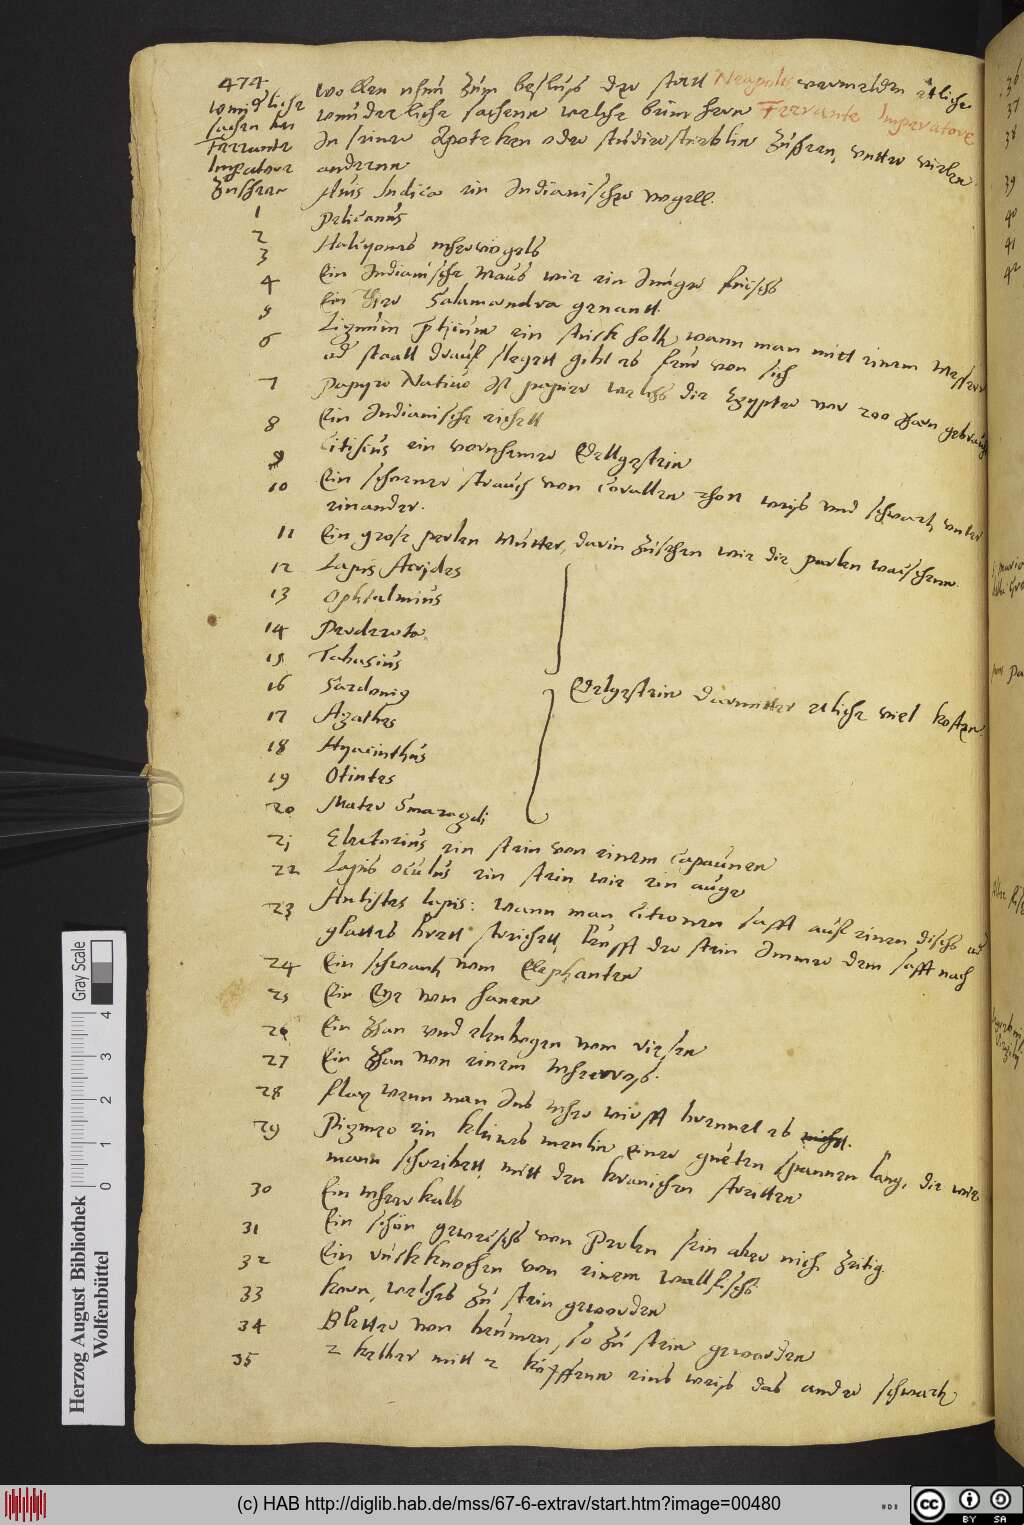 474
wunderliche
sachen bei
Ferrante
Imperatore
Zusehen
wollen nhun zum beschlus der statt Neapolis vermelden etliche
wunderliche sachenn welche beim hern Ferrante Imperatore
In seiner Apoteken oder studierstueblin zusehen, unter vielen
anderenn
1 Avis Indica ein Indianischer vogell.
2 Pelicanus
3 Halcyones mhervögels
4 Ein Indianische Maus wie ein Junger fuchs
5 Ein Thier Salamandra genantt.
6 Lignum ein stuck holtz wann man mitt einem Messer
od staall drauf slagett gibt es feur von sich
7 Papyro Nativo Ist papier welchs die Egypter vor 200 Jharn gebraucht
8 Ein Indianische
9 Citisius ein vornhemer Edellgestein
10 Ein schoener strauch von Corallen rhott weiß und schwartz unter
einander.
11 Ein grose perlen Mutter, darin zusehen wie die perlen wachsenn.
12 Lapis
13 Ophtalmius
14 Pederota
15 Tahasius
16 Sardonig
17 Agathes
18 Hyacinthus
19 Otintes
20 Mater Smaragdi
Edelgestein darunter etliche viel kosten.
21 Electorius ein stein von einem Capaunen
22 Lapis oculus ein stein wie ein auge
23 lapis: wann man Citronen safft auf einen disch od
glattes brett streichett, leufft der stein Immer dem safft nach
24 Ein schwantz vom Elephanten
25 Ein Eye vom hanen
26 Ein Zhan und elenbogen vom riesen
27 Ein Zhan von einem Mherross.
28 flax wenn man Ins fhewr wirfft brennet es nicht.
29 Pigmeo ein kleines menlin einer gueten spannen lang, die wie
mann schreibett, mitt den kranichen streitten
30 Ein Mherkalb
31 Ein schön gewechs von Perlen sein aber nich zeitig.
32 Ein ruckknochen von einem wallfisch
33 korn, welches zu stein geworden
34 Bletter von beumen, so zu stein geworden
35 2 kelber mitt 2 köpffenn eins weiß das ander schwartz
36
37
38
39
40
41
42
Gray Scale
0 1 2 3 4
Herzog August Bibliothek
Wolfenbüttel
(c) HAB http://diglib.hab.de/mss/67-6-extrav/start.htm?image=00480
cc BY SA